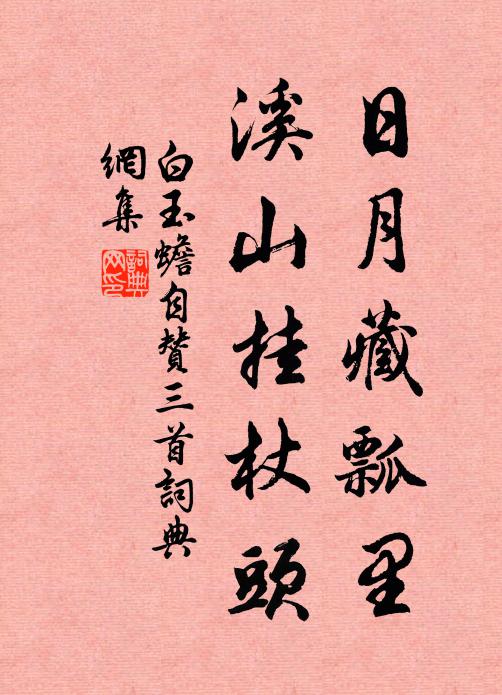 日月藏瓢里
溪山挂杖頭
白玉蟾自贊三首詞典
網集
詞典
网印